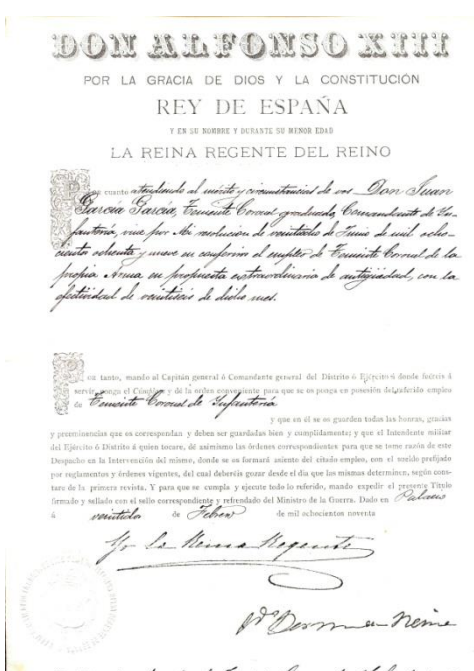 DON ALFONSO XIII
POR LA GRACIA DE DIOS Y LA CONSTITUCIÓN
REY DE ESPAÑA
Y EN SU NOMBRE Y DURANTE SU MENOR EDAD
LA REINA REGENTE DEL REINO
Por cuanto atendiendo al mérito y circunstancias de vos Don Juan
García García, Teniente Coronel graduado, Comandante de In-
fantería, vine por Mi resolución de de Junio de mil ocho-
cientos ochenta y nueve en conferiros el empleo de Teniente Coronel de la
propia Arma en propuesta extraordinaria de antigüedad, con la
efectividad de veintiseis de dicho mes.
Por tanto, mando al Capitán general ó Comandante general del Distrito ó Ejército á donde fuéreis á
servir, ponga el Cúmplase y dé la orden conveniente para que se os ponga en posesión del referido empleo
de Teniente Coronel de Infantería
y que en él se os guarden todas las honras, gracias
y preeminencias que os correspondan y deben ser guardadas bien y cumplidamente; y que el Intendente militar
del Ejército ó Distrito á quien tocare, dé asimismo las órdenes correspondientes para que se tome razón de este
Despacho en la Intervención del mismo, donde se os formará asiento del citado empleo, con el sueldo prefijado
por reglamentos y órdenes vigentes, del cual deberéis gozar desde el día que los mismos determinen, según cons-
tare de la primera revista. Y para que se cumpla y ejecute todo lo referido, mando expedir el presente Título
firmado y sellado con el sello correspondiente y refrendado del Ministro de la Guerra. Dado en Palacio
á veintidos de Febrero de mil ochocientos noventa
Yo la Reina Regente